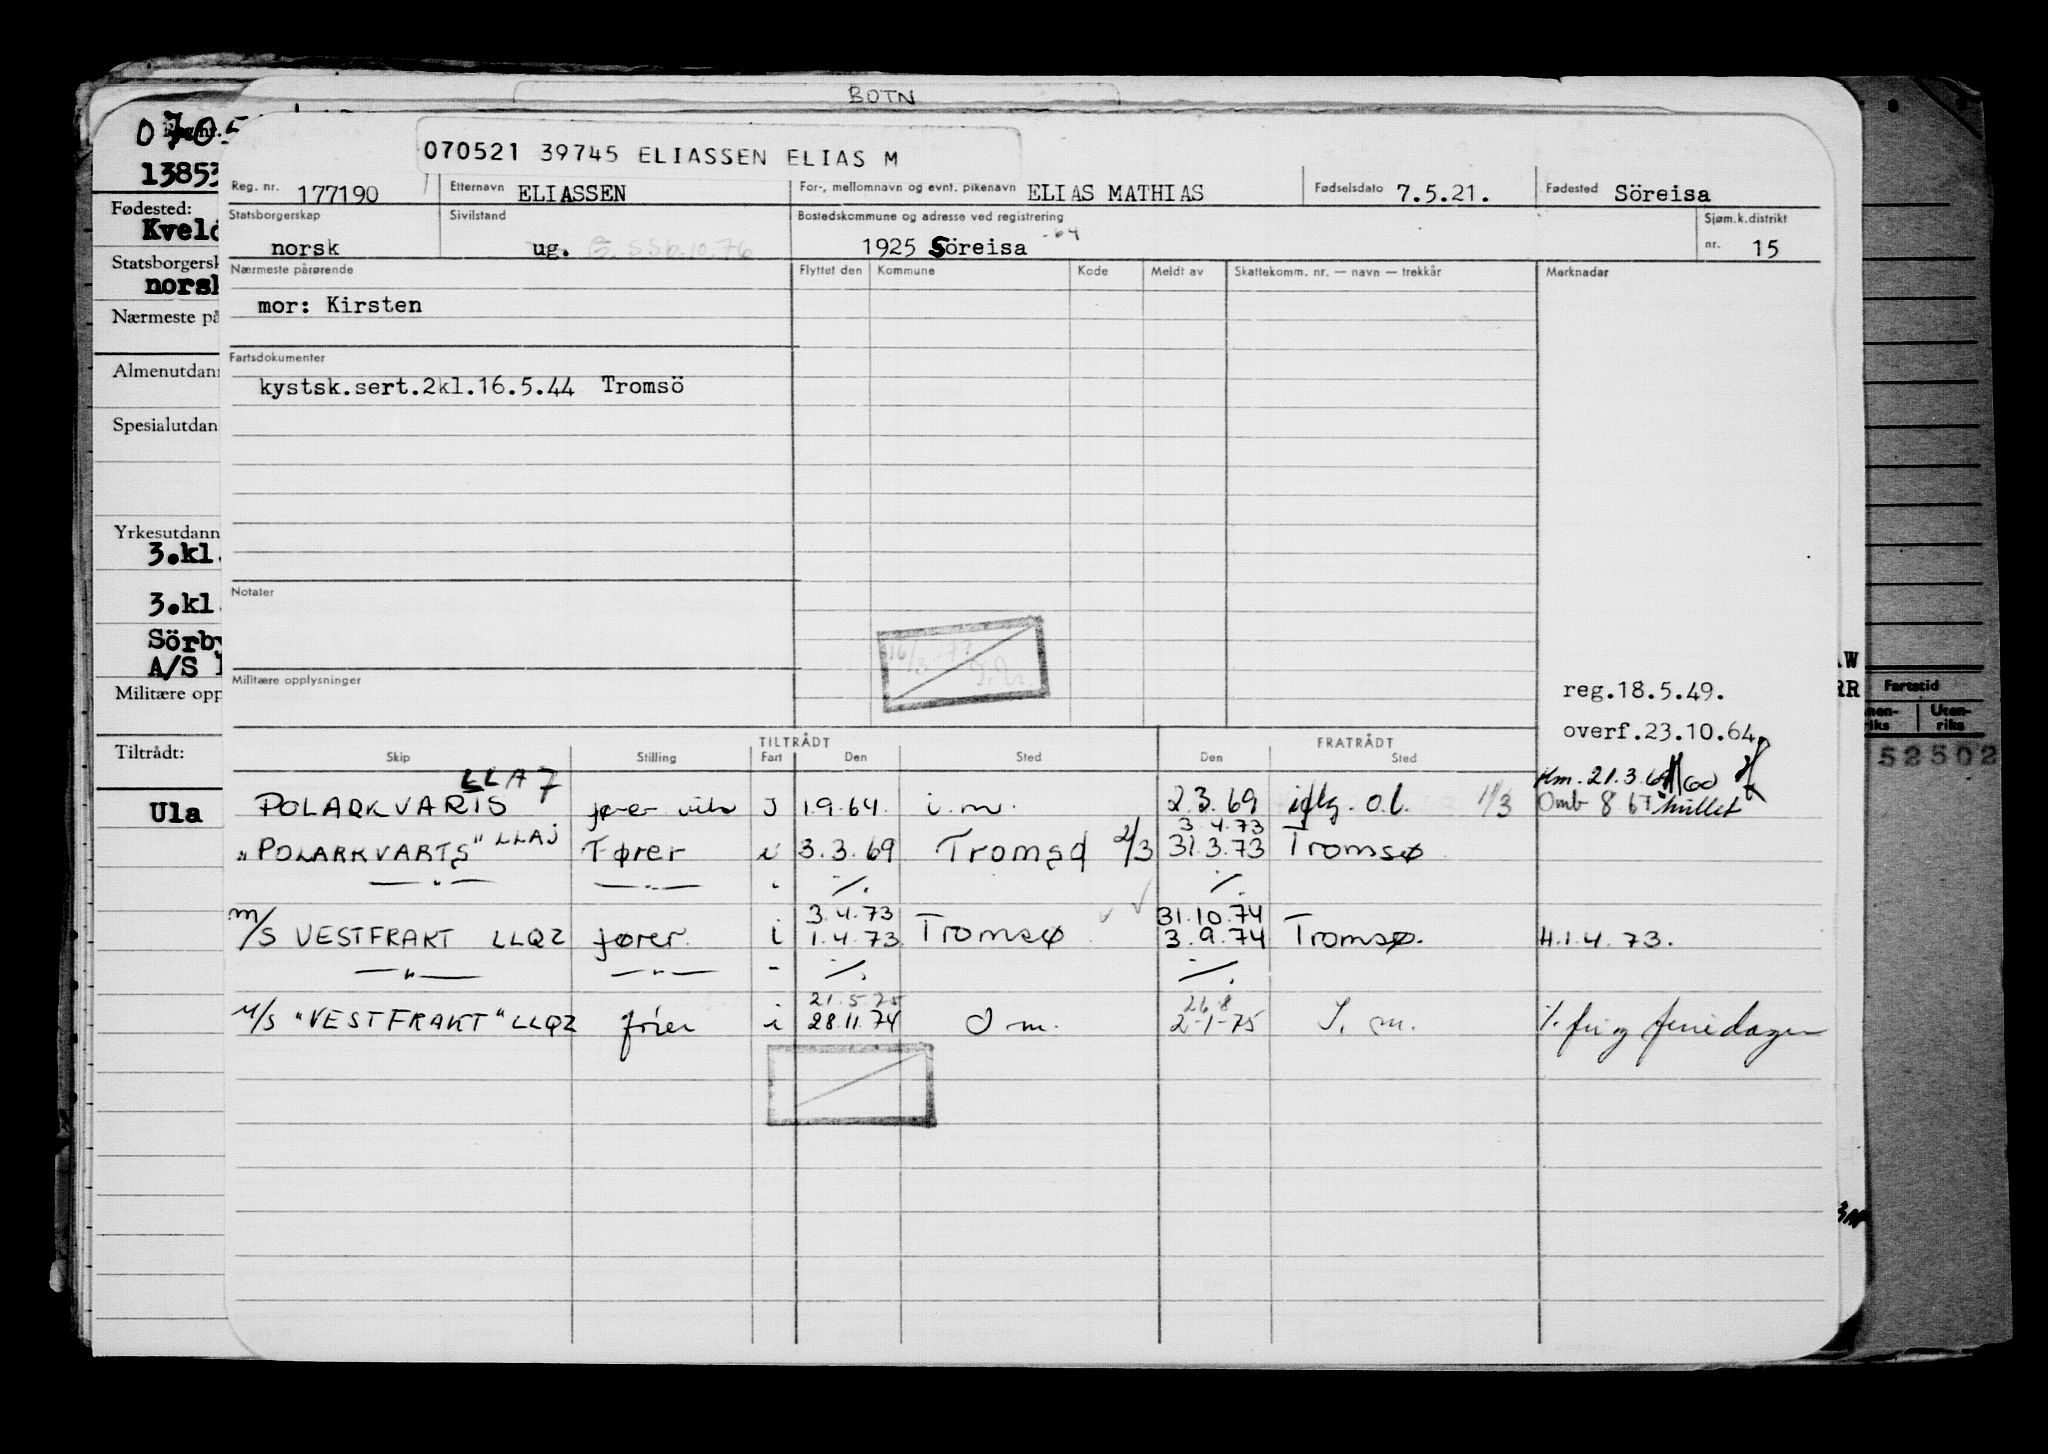 BOTN
070521 39745 ELIASSEN ELIAS M
Reg. nr. 177190 Etternavn ELIASSEN For-, mellomnavn og evnt. pikenavn ELIAS MATHIAS Fødselsdato 7.5.21. Fødested Söreisa
Statsborgerskap Sivilstand Bostedskommune og adresse ved registrering Sjøm.k.distrikt
norsk ug. 1925 Söreisa -64 nr. 15
Nærmeste pårørende Flyttet den Kommune Kode Meldt av Skattekomm. nr. — navn — trekkår Merknader
mor: Kirsten
Fartsdokumenter
kystsk.sert.2kl.16.5.44 Tromsö
Notater
Militære opplysninger
reg.18.5.49.
overf.23.10.64.
TILTRÅDT FRATRÅDT
Skip Stilling Fart Den Sted Den Sted
LLAJ
POLARKVARTS J 1.9.64. i.m. 2.3.69 o.l. 11/3
3.4.73
"POLARKVARTS" LLAJ Fører i 3.3.69 Tromsø 2/3 31.3.73 Tromsø
—"— —"— " ./. ./.
3.4.73 31.10.74
M/S VESTFRAKT LLQZ fører i 1.4.73 Tromsø 3.9.74 Tromsø. H.1.4.73.
—"— —"— - ./. ./.
21.5.75 26.8
M/S "VESTFRAKT" LLQZ fører i 28.11.74 J m. 2-1-75 J. m. ./. fri og feriedager
0705
13853
Fødested:
Kveld
Statsborgersk
norsk
Nærmeste på
Almenutdann
Spesialutdan
Yrkesutdann
3.kl.
3.kl.
Sörby
A/S
Militære opp
Tiltrådt:
Ula
W
RR
Fartstid
nen-
riks
Uten-
riks
52502